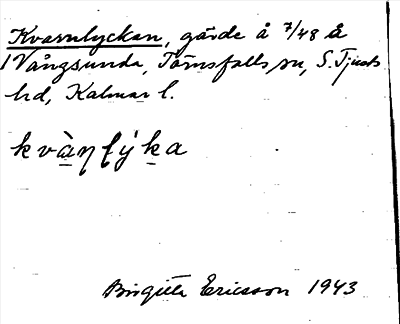 Kvarnlyckan, gärde å 7/48 å
1 Vångsunda, Törnsfalls sn, S. Tjusts
hd, Kalmar l.
kvàɳļýka
Birgitta Ericsson 1943